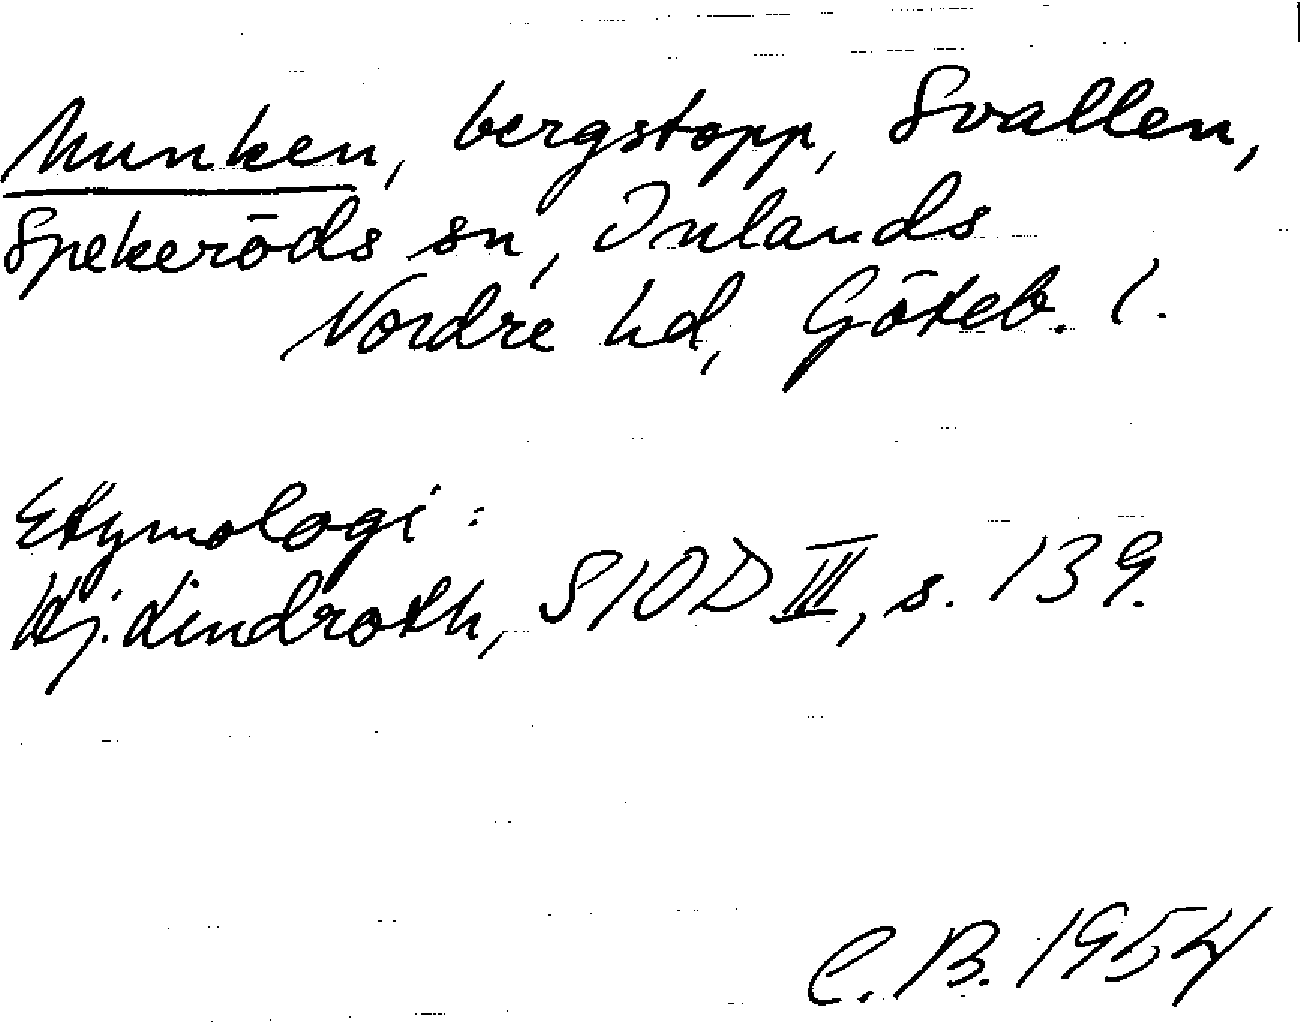 Munken, bergstopp, Svallen,
Spekeröds sn, Inlands
Nordre hd, Göteb. l.
Etymologi:
Hj. Lindroth, SIOD III, s. 139.
C. B. 1954